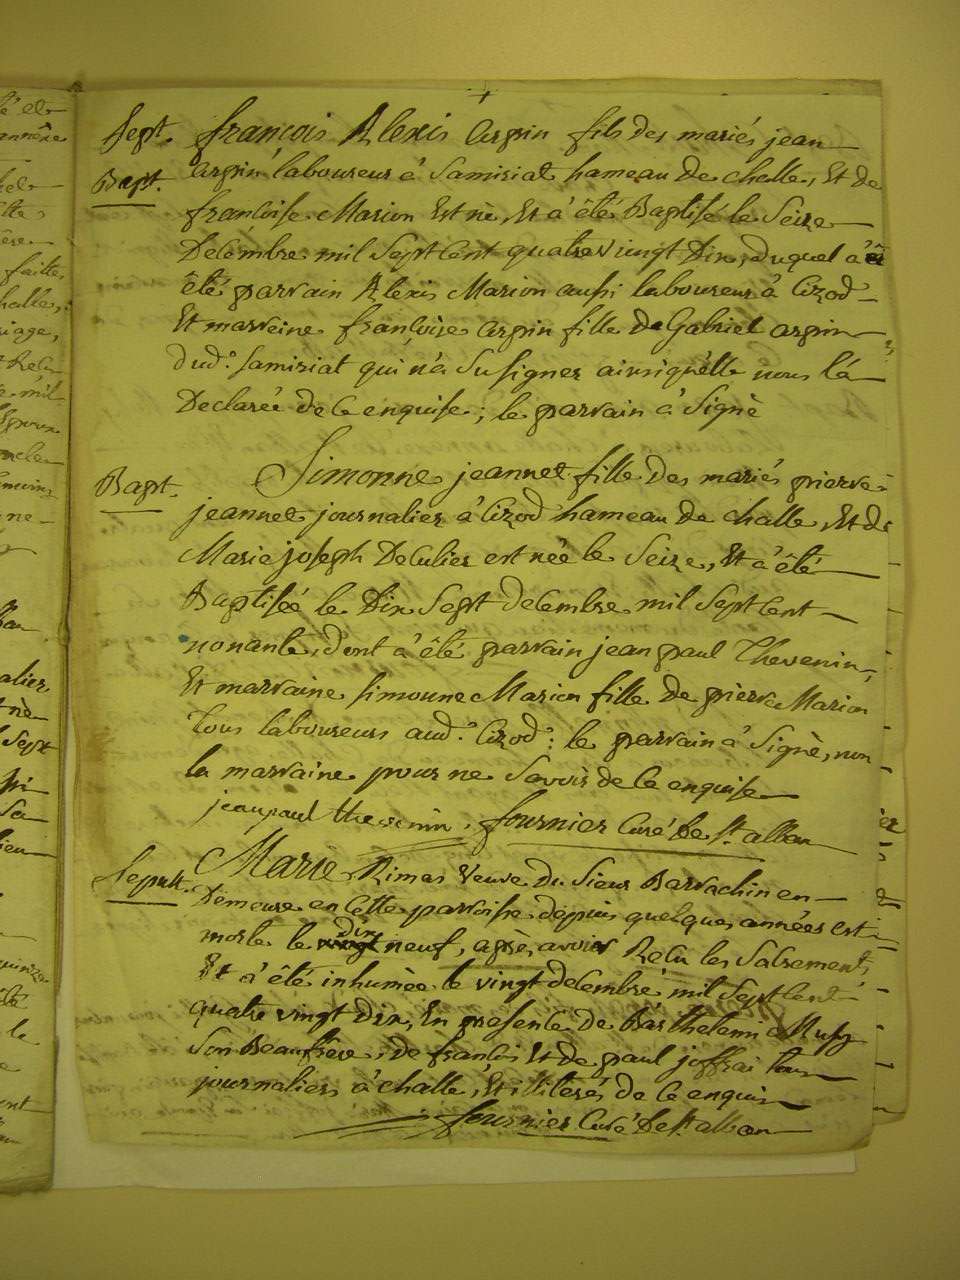 Sept. françois Alexis arpin fils des mariés jean
Bapt. arpin laboureur à Samiriat hameau de challe, Et de
françoise Marion Est né, Et a été Baptisé le Seize
Decembre mil Sept Cent quatre vingt Dix, duquel a
êté parvain Alexis Marion aussi laboureur à Cizod
Et marveine françoise arpin fille de Gabriel arpin
dud.º Samiriat qui n'a Su signer ainsi qu'elle nous l'a
Declarée de Ce enquise; le parvain a Signé
Bapt. Simonne jeannet fille des mariés pierre
jeannet journalier à Cizod hameau de challe, Et de
Marie joseph Deculier est née le Seize, Et a été
Baptisée le Dix Sept decembre mil Sept Cent
nonante, dont a été parvain jean paul Thevenin,
Et marvaine simonne Marion fille de pierre Marion
tous laboureurs aud.º Cizod: le parvain a Signé, non
la marvaine pour ne Savoir de Ce enquise
jean paul thevenin. fournier Curé de St. alban
Sepult. Marie Rimas Veuve du Sieur Barrachin en
Demeure en Cette parroise depuis quelques années est
morte le Dix neuf, après avoir Reçu les Sacrements,
Et a été inhumée le vingt decembre mil Sept Cent
quatre vingt Dix, En presence de Barthelemi
Son Beaufrère, de françois Et de paul joffrai tous
journaliers à challe, Et illiterés de Ce enquis
fournier Curé De St. alban